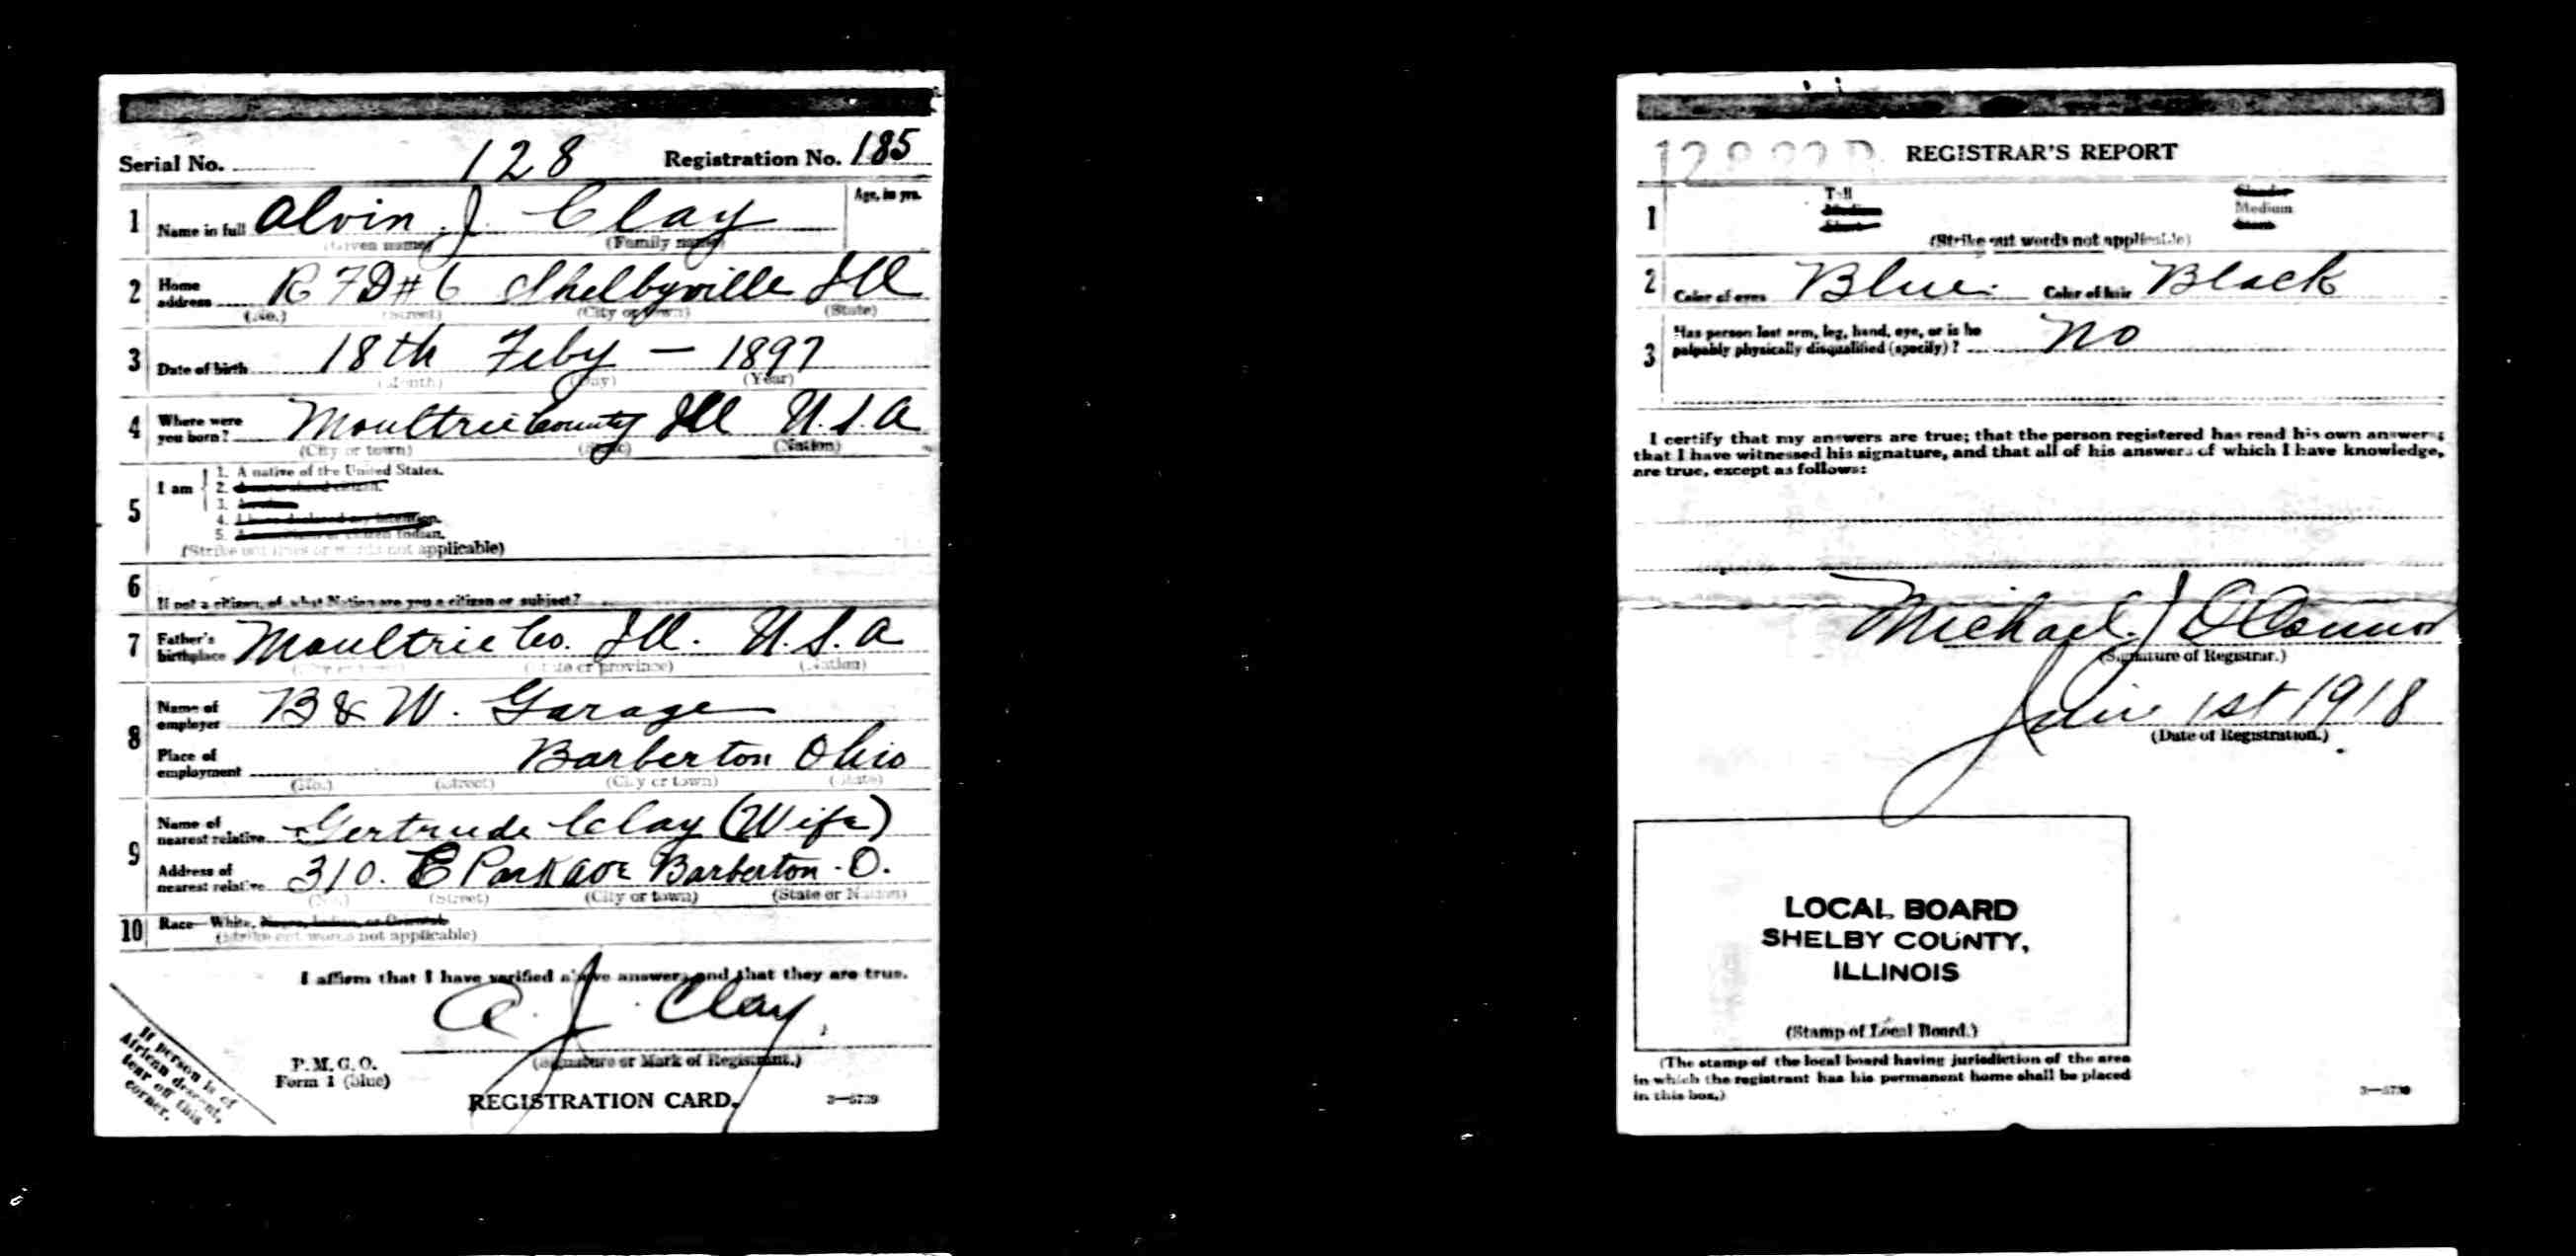 Serial No. 128 Registration No. 185
1 Name in full Alvin J Clay Age, in yrs.
(Given name) (Family name)
2 Home address R F D # 6 Shelbyville Ill
(No.) (Street) (City or town) (State)
3 Date of birth 18th Feby — 1897
(Month) (Day) (Year)
4 Where were you born? Moultrie County Ill U.S.A
(City or town) (State) (Nation)
5 I am
1. A native of the United States.
2. A naturalized citizen.
3. An alien.
4. I have declared my intention.
5. A noncitizen or citizen Indian.
(Strike out lines or words not applicable)
6 If not a citizen, of what Nation are you a citizen or subject?
7 Father's birthplace Moultrie Co. Ill. U.S.A
(City or town) (State or province) (Nation)
8 Name of employer B & W. Garage
Place of employment Barberton Ohio
(No.) (Street) (City or town) (State)
9 Name of nearest relative Gertrude Clay (Wife)
Address of nearest relative 310. E Park ave Barberton - O.
(No.) (Street) (City or town) (State or Nation)
10 Race—White, Negro, Indian, or Oriental.
(Strike out words not applicable)
I affirm that I have verified above answers and that they are true.
A. J. Clay
(Signature or Mark of Registrant.)
P. M. G. O.
Form 1 (blue)
REGISTRATION CARD.
3—5739
If person is of
African descent,
tear off this
corner.
REGISTRAR'S REPORT
1 Tall Slender
Medium Medium
Short Stout
(Strike out words not applicable)
2 Color of eyes Blue Color of hair Black
3 Has person lost arm, leg, hand, eye, or is he
palpably physically disqualified (specify)? No
I certify that my answers are true; that the person registered has read his own answers;
that I have witnessed his signature, and that all of his answers of which I have knowledge,
are true, except as follows:
Michael J O'Connor
(Signature of Registrar.)
June 1st 1918
(Date of Registration.)
LOCAL BOARD
SHELBY COUNTY,
ILLINOIS
(Stamp of Local Board.)
(The stamp of the local board having jurisdiction of the area
in which the registrant has his permanent home shall be placed
in this box.)
3—5739